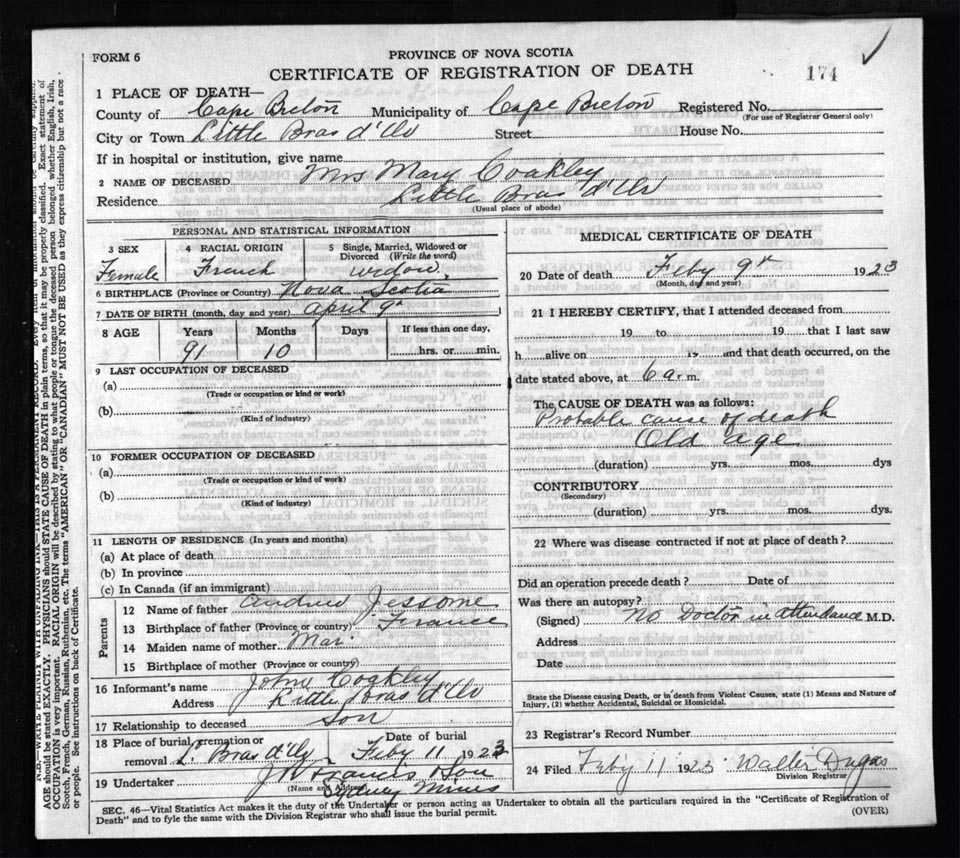 FORM 6
PROVINCE OF NOVA SCOTIA
CERTIFICATE OF REGISTRATION OF DEATH
174
1 PLACE OF DEATH—
County of Cape Breton Municipality of Cape Breton Registered No.
(For use of Registrar General only)
City or Town Little Bras d'Or Street House No.
If in hospital or institution, give name
2 NAME OF DECEASED Mrs Mary Coakley
Residence Little Bras d'Or
(Usual place of abode)
PERSONAL AND STATISTICAL INFORMATION
3 SEX 4 RACIAL ORIGIN 5 Single, Married, Widowed or Divorced (Write the word)
Female French widow
6 BIRTHPLACE (Province or Country) Nova Scotia
7 DATE OF BIRTH (month, day and year) April 9th
8 AGE Years Months Days If less than one day,
91 10 hrs. or min.
9 LAST OCCUPATION OF DECEASED
(a)
(Trade or occupation or kind or work)
(b)
(Kind of industry)
10 FORMER OCCUPATION OF DECEASED
(a)
(Trade or occupation or kind of work)
(b)
(Kind of industry)
11 LENGTH OF RESIDENCE (In years and months)
(a) At place of death
(b) In province
(c) In Canada (if an immigrant)
Parents
12 Name of father Andrew Jessome
13 Birthplace of father (Province or country) France
14 Maiden name of mother
15 Birthplace of mother (Province or country)
16 Informant's name John Coakley
Address Little Bras d'Or
17 Relationship to deceased Son
18 Place of burial, cremation or removal L. Bras d'Or Date of burial Feby 11 1923
19 Undertaker Francis & Son
(Name and Address) Sydney Mines
MEDICAL CERTIFICATE OF DEATH
20 Date of death Feby 9th 1923
(Month, day and year)
21 I HEREBY CERTIFY, that I attended deceased from
19 to 19 that I last saw
h alive on 19 and that death occurred, on the
date stated above, at 6 a. m.
The CAUSE OF DEATH was as follows:
Probable cause of death
Old age
(duration) yrs. mos. dys
CONTRIBUTORY
(Secondary)
(duration) yrs. mos. dys.
22 Where was disease contracted if not at place of death?
Did an operation precede death? Date of
Was there an autopsy?
(Signed) No Doctor in attendance M.D.
Address
Date
State the Disease causing Death, or in death from Violent Causes, state (1) Means and Nature of
Injury, (2) whether Accidental, Suicidal or Homicidal.
23 Registrar's Record Number
24 Filed Feby 11 1923 Walter Dugas
Division Registrar
SEC. 46—Vital Statistics Act makes it the duty of the Undertaker or person acting as Undertaker to obtain all the particulars required in the "Certificate of Registration of
Death" and to fyle the same with the Division Registrar who shall issue the burial permit.
(OVER)
N.B.—WRITE PLAINLY WITH UNFADING INK—THIS IS A PERMANENT RECORD. Every item of information should be carefully supplied.
AGE should be stated EXACTLY. PHYSICIANS should STATE CAUSE OF DEATH in plain terms, so that it may be properly classified. Exact statement of
OCCUPATION is very important. RACIAL ORIGIN will be described by stating to what people or tongue the deceased person belonged whether English, Irish,
Scotch, French, German, Russian, Ruthenian, etc. The terms "AMERICAN" OR "CANADIAN" MUST NOT BE USED as they express citizenship but not a race
or people. See instructions on back of Certificate.